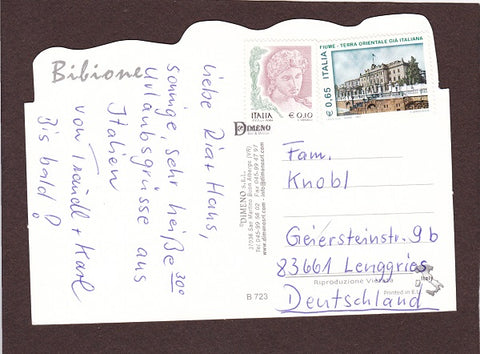 Bibione
Liebe Ria + Hans,
sonnige, sehr heiße 30°
Urlaubsgrüsse aus
Italien
von Traudl + Karl
Bis bald!
DIMENO s.a.s.
37036 San Martino Buon Albergo (VR)
Tel. 045-99 56 02 - Fax 045-99 47 97
www.dimenosrl.com
B 723
ITALIA
€ 0,10
FIUME - TERRA ORIENTALE GIÀ ITALIANA
€ 0,65 ITALIA
DIMENO
Fam.
Knobl
Geiersteinstr. 9b
83661 Lenggries
Riproduzione Vietata
Printed in E.U.
Deutschland